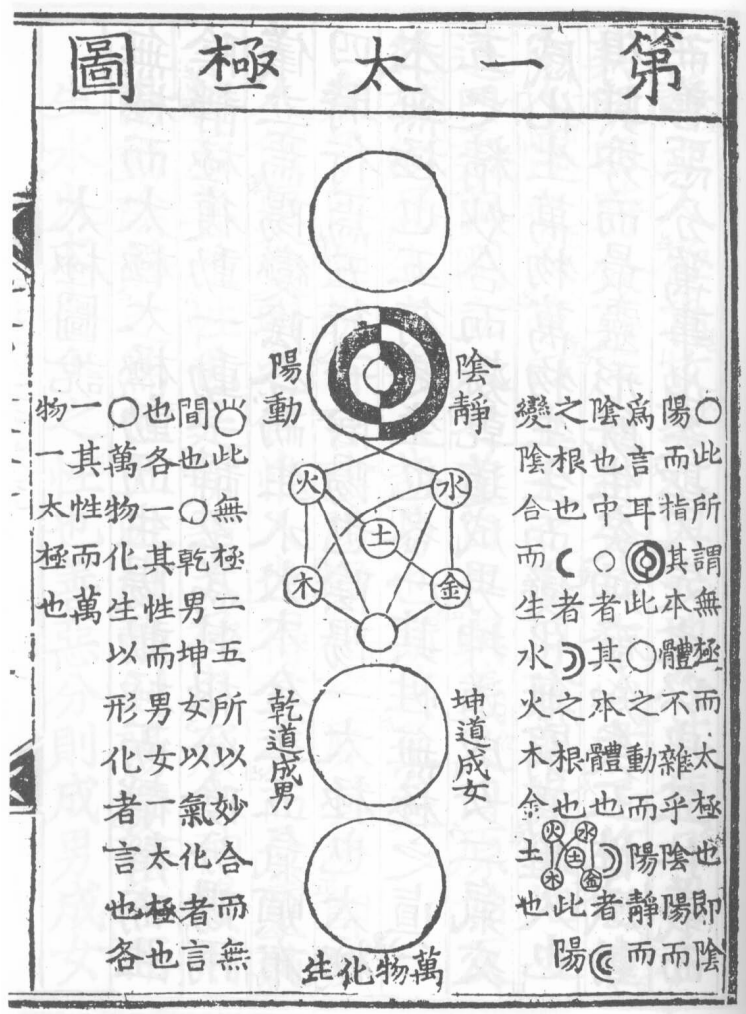 第一太極圖
○此所謂無極而太極也即陰
陽而指其本體不雜乎陰陽而
爲言耳此○之動而陽靜而
陰也中○者其本體也者
之根也者之根也
火水土木金
此陽
變陰合而生水火木金土也
陰靜
陽動
水
火
土
金
木
坤道成女
乾道成男
萬物化生
此無極二五所以妙合而無
間也○乾男坤女以氣化者言
也各一其性而男女一太極也
○萬物化生以形化者言也各
一其性而萬
物一太極也